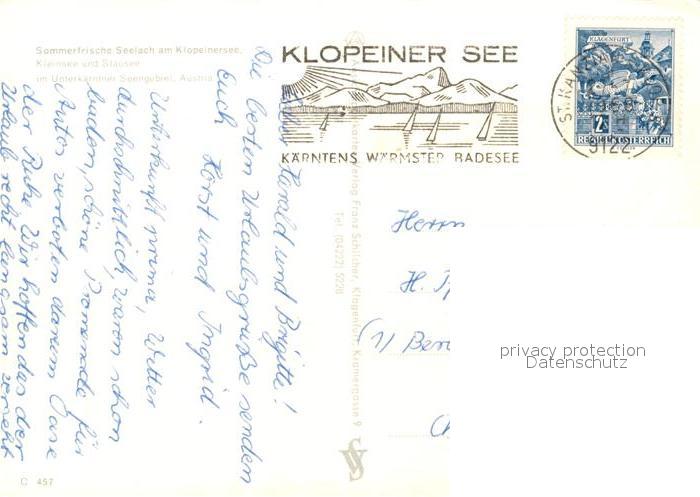 Sommerfrische Seelach am Klopeinersee,
Kleinsee und Stausee
im Unterkärntner Seengebiet, Austria
KLOPEINER SEE
KÄRNTENS WÄRMSTER BADESEE
KLAGENFURT
2
REPUBLIK ÖSTERREICH
ST. KANZIAN
9122
Harald und Brigitte!
Die besten Urlaubsgrüße senden
Euch Horst und Ingrid.
Unterkunft prima, Wetter
durchschnittlich, waren schon
baden, schöne Promenade für
Autos verboten darum Oase
der Ruhe. Wir hoffen das der
Urlaub recht langsam vergeht
Verlag Franz Schilcher, Klagenfurt, Kramergasse 9
Tel. (04222) 5228
Herrn
H.
(1) Ber
C 457
privacy protection
Datenschutz